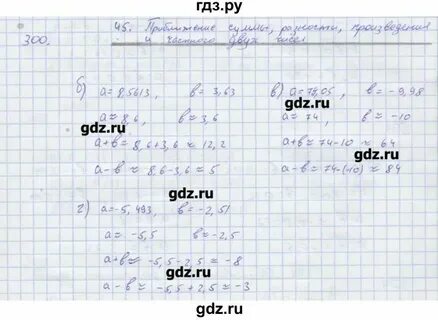 гдз.ру
300.
45. Приближение суммы, разности, произведения
и частного двух чисел
б) a=8,5613, b=3,63
a≈8,6, b≈3,6
a+b≈8,6+3,6≈12,2
a-b≈8,6-3,6≈5
в) a=74,05, b=-9,98
a≈74, b≈-10
a+b≈74-10≈64
a-b≈74-(-10)≈84
г) a=-5,493, b=-2,51
a≈-5,5 b≈-2,5
a+b≈-5,5-2,5≈-8
a-b≈-5,5+2,5≈-3
gdz.ru
gdz.ru
gdz.ru
gdz.ru
gdz.ru
gdz.ru